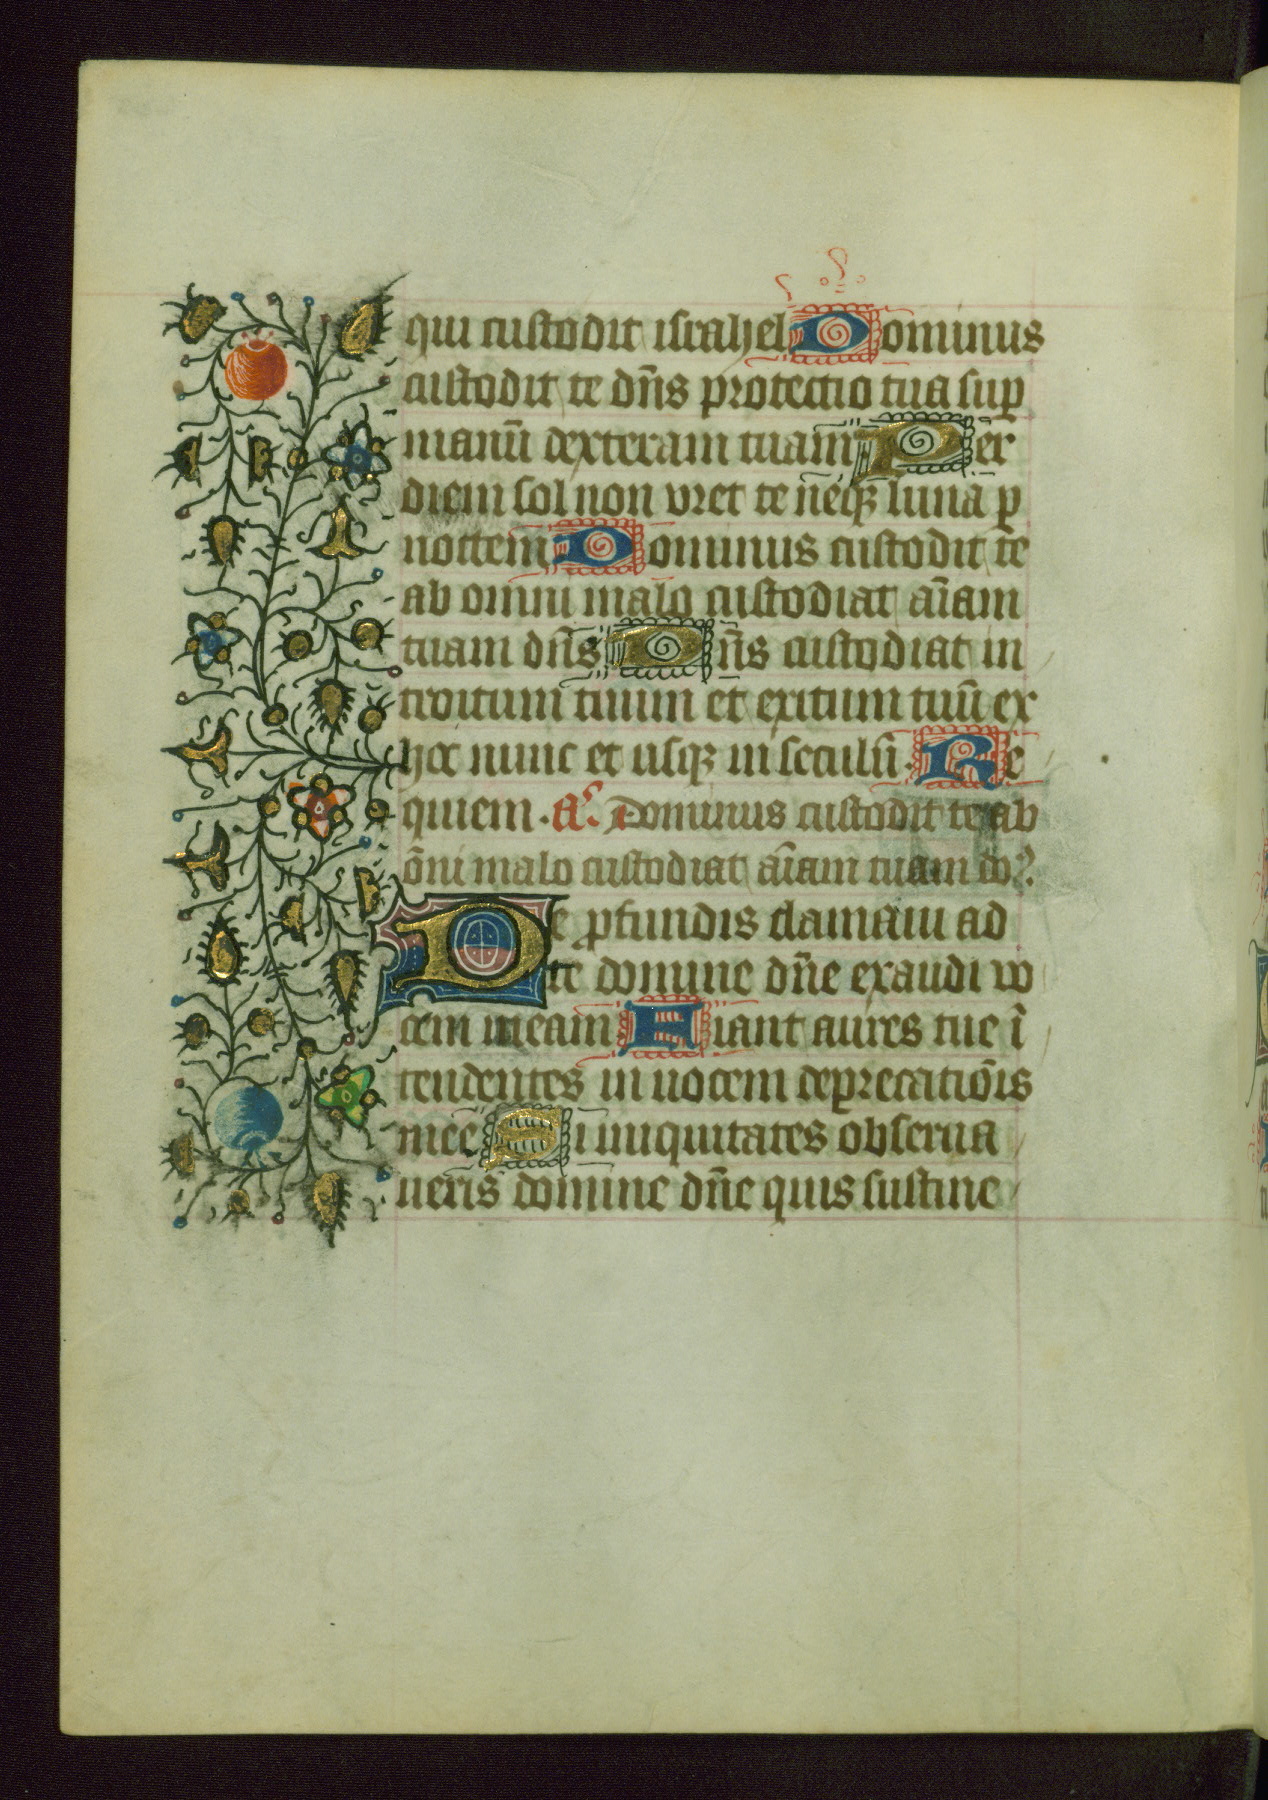 qui custodit israhel Dominus
custodit te dn̄s protectio tua sup̲
manū dexteram tuam Per
diem sol non vret te neqꝫ luna ꝑ
noctem Dominus custodit te
ab omni malo custodiat aīam
tuam dn̄s Dn̄s custodiat in
troitum tuum et exitum tuū ex
hoc nunc et usqꝫ in seculū. Re
quiem. A᷑. Dominus custodit te ab
ōni malo custodiat aīam tuam do?.
De ꝓfundis clamaui ad
te domine dn̄e exaudi vo
cem meam Fiant aures tue ī
tendentes in uocem deprecatiōis
mee Si iniquitates obserua
ueris domine dn̄e quis sustine